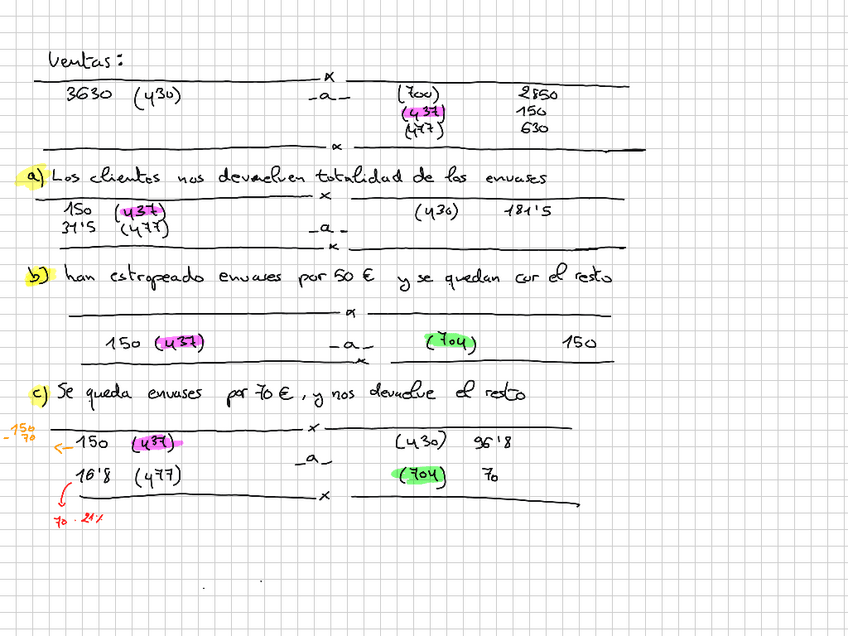 Ventas:
x
3630 (430) -a- (700) 2850
(437) 150
(477) 630
x
a) Los clientes nos devuelven totalidad de los envases
x
150 (437) (430) 181'5
31'5 (477) -a-
x
b) han estropeado envases por 50 € y se quedan con el resto
x
150 (437) -a- (704) 150
x
c) Se queda envases por 70 €, y nos devuelve el resto
x
150
- 70
← 150 (437) (430) 96'8
-a-
16'8 (477) (704) 70
x
70 · 21%